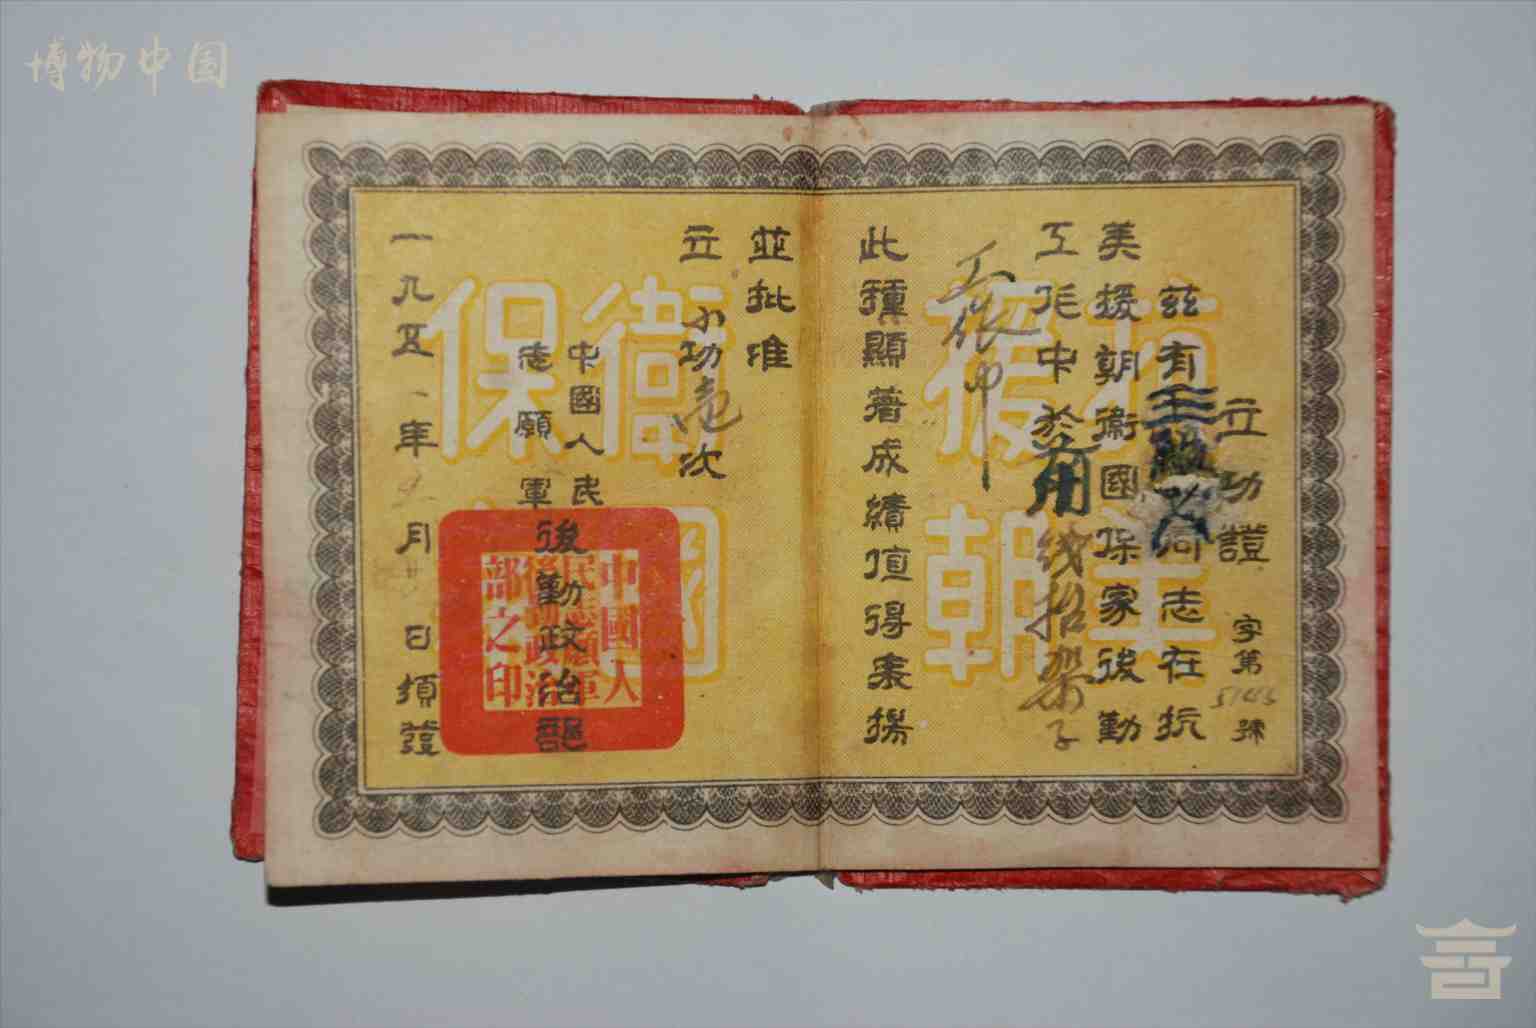 博物中国
立功證 字第 號
兹有 同志在抗
美援朝衛國保家後勤
工作中於 用 线 架子
此種顯著成績值得表揚
並批准
立小功壱次
中國人民
志願軍後勤政治部
一九五 年 月 日頒發
抗美援朝
衛國保
中國人民志願軍後勤政治部之印